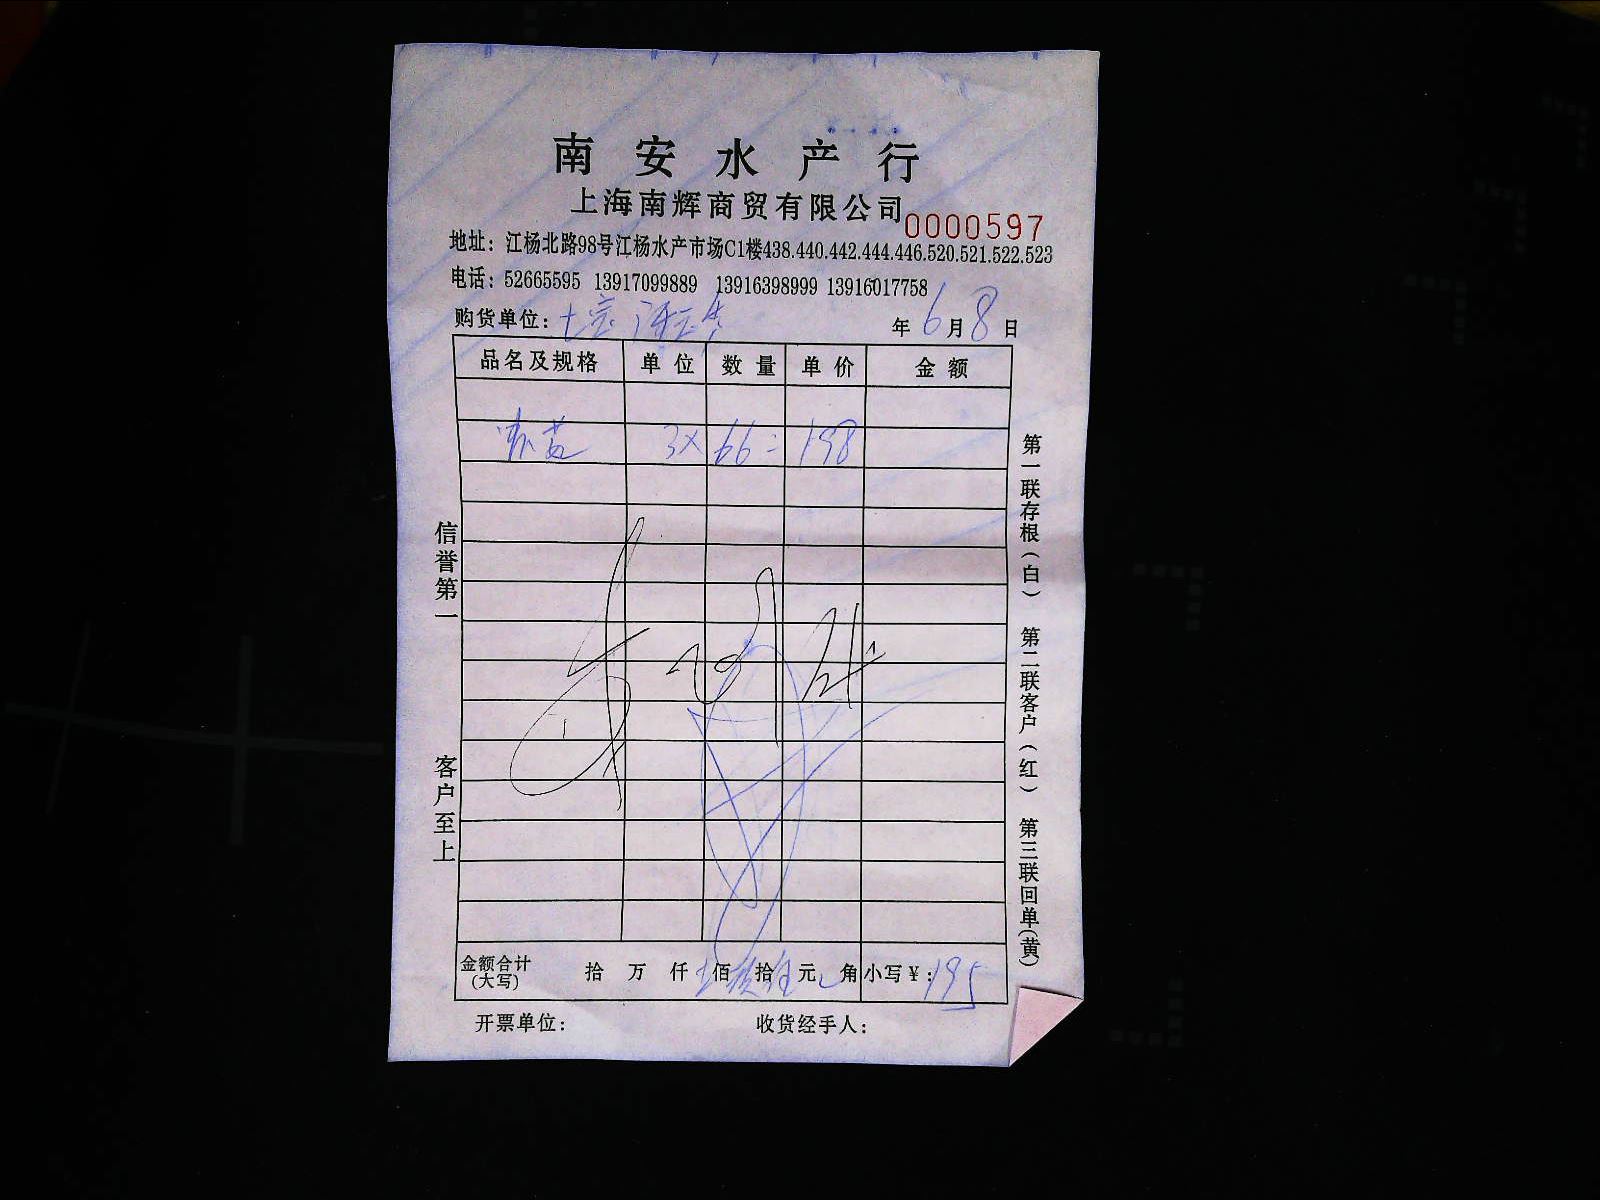 南安水产行
上海南辉商贸有限公司
0000597
地址：江杨北路98号江杨水产市场C1楼438.440.442.444.446.520.521.522.523
电话：52665595 13917099889 13916398999 13916017758
购货单位：
年 6 月 8 日
品名及规格 单位 数量 单价 金额
3× 66= 198
信誉第一
客户至上
第一联存根（白） 第二联客户（红） 第三联回单（黄）
金额合计（大写） 拾 万 仟 佰 拾 元 角 小写￥：195
开票单位： 收货经手人：